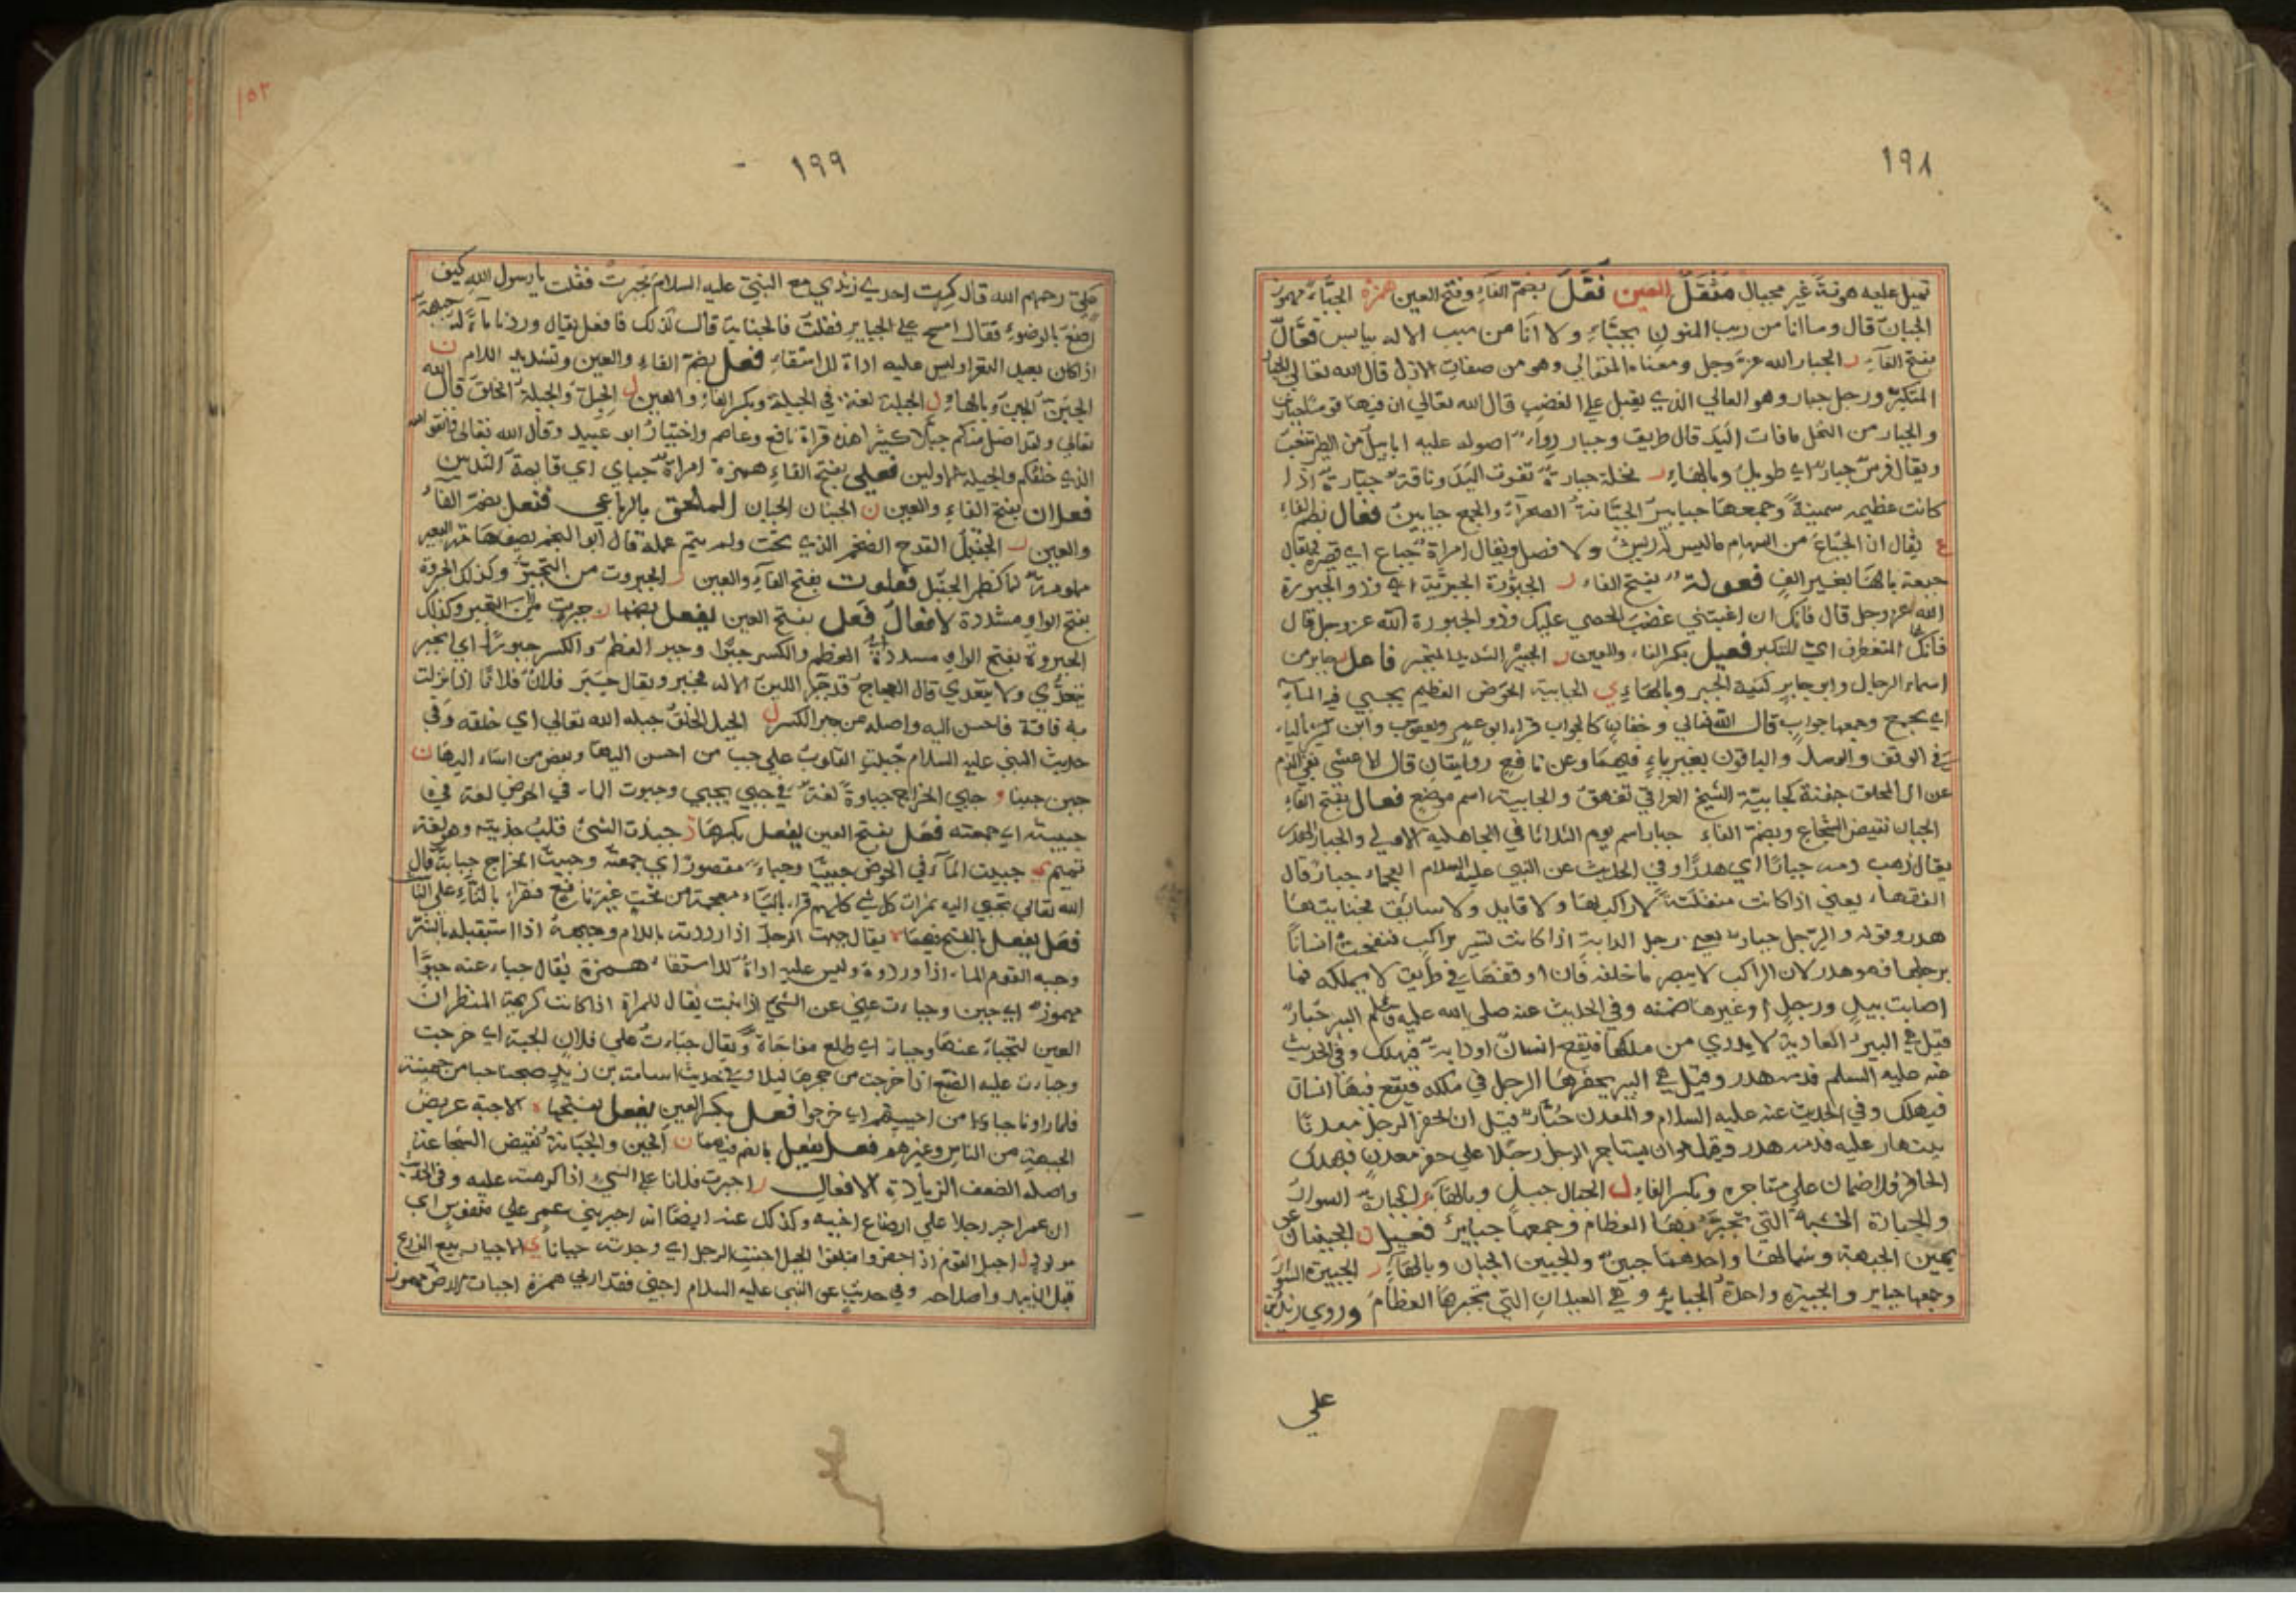 ١٩٨
تميل عليه هونة غير مجبال مثقل العين فُعَّل بضم الفاء وفتح العين همزة الجبّاء مهموز
الجبان قال وما انا من ريب المنون بجبّاء ولا انا من سيب الاله بيايس فعّال
بفتح الفاء ر الجبار الله عز وجل ومعناه المتعالي وهو من صفات الازل قال الله تعالى الجبار
المتكبر ورجل جبار وهو العالي الذي يقبل على الغضب قال الله تعالى ان فيها قوما جبارين
والجبار من النخل ما فات اليد قال طريق وجبار رواء اصوله عليه ابابيل من الطير تنعب
ويقال فرس جبار اي طويل وبالهاء ر نخلة جبارة تفوت اليد وناقة جبارة اذا
كانت عظيمه سمينة وجمعها جبابير الجبّانة الصحراء والجمع جبابين فعال بضم الفاء
ع يقال ان الجباع من السهام ما ليس له ريش ولا فصل ويقال امراة جباع اي قصيرة يقال
جبعة بالهاء بغير الف فعولة بفتح الفاء ر الجبورة الجبريّة اي وذو الجبورة
الله عز وجل قال فانك ان اغبتني غضب الحصى عليك وذو الجبورة الله عز وجل قال
فانك المتغطرف اي المتكبر فعيل بكسر الفاء والعين ر الجبير الشديد التجبر فاعل ر جابر من
اسماء الرجال وابو جابر كنية الخبز وبالهاء ي الجابية الحوض العظيم يجبى فيه الماء
اي يجمع وجمعها جواب قال الله تعالى وجفان كالجواب قراء ابو عمر ويعقوب وابن كثير بالياء
في الوقف والوصل والباقون بغير ياء فيهما وعن نافع روايتان قال الاعشى نفى الذم
عن ال المحلق جفنة كجابية الشيخ العراقي تفهق والجابية اسم موضع فعال بفتح الفاء
الجبان نقيض الشجاع وبضم الفاء جبار اسم يوم الثلاثا في الجاهلية الاولى والجبار الهدر
يقال ذهب دمه جبارًا اي هدرًا وفي الحديث عن النبي عليه السلام العجماء جبار قال
الفقهاء يعني اذا كانت منفلتة لا راكب لها ولا قايد ولا سايق فجنايتها
هدر وقوله والرجل جبار يعني رجل الدابة اذا كانت تسير براكب فنفحت انسانًا
برجلها فهو هدر لان الراكب لا يبصر ما خلفه فان اوقفها في طريق لا يملكه فما
اصابت بيد ورجل او غيرها ضمنه وفي الحديث عنه صلى الله عليه وسلم البير جبار
قيل هي البير العادية لا يدري من ملكها فيقع انسان او دابة فيهلك وفي الحديث
عنه عليه السلم فدمه هدر وقيل هي البير يحفرها الرجل في ملكه فيقع فيها انسان
فيهلك وفي الحديث عنه عليه السلام والمعدن جبار قيل ان الحفر الرجل معدنًا
ينهار عليه فدمه هدر وقيل هو ان يستاجر الرجل رجلا على حفر معدن فيهلك
الحافر فلا ضمان على مستاجره وبكسر الفاء ل الجبال جبل وبالهاء ر الجبارة السوار
والجبارة الخشبة التي تجبر بها العظام وجمعها جبابير فعيل ن الجبينان عن
يمين الجبهة وشمالها واحدهما جبين والجبين الجبان وبالهاء ر الجبيرة السوار
وجمعها جبابر والجبيرة واحدة الجباير وهي العيدان التي تجبر بها العظام وروي زيد بن
علي
١٩٩
١٥٢
علي رحمهم الله قال كسرت احدى زندي مع النبي عليه السلام فجبرت فقلت يا رسول الله كيف
اصنع بالوضوء فقال امسح على الجباير فقلت فالجنابة قال كذلك فافعل يقال وردنا ماء له جبهة
اذا كان بعيد القعر او ليس عليه اداة للاستقاء فعل بضم الفاء والعين وتشديد اللام ن
الجبنّ الجبن وبالهاء ل الجبلة لغة في الجبلة وبكسر الفاء والعين ل الجبل والجبلة الخلق قال الله
تعالى ولقد اضل منكم جبلا كثيرا هذه قراة نافع وعاصم واختيار ابو عبيد وقال الله تعالى واتقوا
الذي خلقكم والجبلة الاولين فعلى بفتح الفاء همزة امراة جباى اي قايمة الثديين
فعلان بفتح الفاء والعين ن الجبنان الجبان الملحق بالرباعي فنعل بضم الفاء
والعين ل الجنبل القدح الضخم الذي نحت ولم يتم عمله قال ابو النجم يصف هامة البعير
ملمومة لما كظهر الجنبل فعلوت بفتح الفاء والعين ر الجبروت من التجبر وكذلك الجبروة
بفتح الواو مشددة الافعال فعل بفتح العين يفعل بضمها ر جبرت من الفقير وكذلك
الجبروة بفتح الواو مسددة العظم والكسر جبرًا وجبر العظم والكسر جبورًا اي انجبر
يتعدى ولا يتعدى قال العجاج قد جبر الدين الاله فجبر ويقال جبر فلان فلانًا اذا نزلت
به فاقة فاحسن اليه واصله من جبر الكسر ل الجبل الخلق جبله الله تعالى اي خلقه وفي
حديث النبي عليه السلام جُبلت القلوب على حب من احسن اليها وبغض من اساء اليها ن
جبن جبنا و جبى الخراج جباوة لغة في جبى يجبي وجبوت الماء في الحوض لغة في
جبيته اي جمعته فعل بفتح العين يفعل بكسرها ذ جبذت الشئ قلب جذبته وهو لغة
تميم ي جبيت الماء في الحوض جبيًا وجباء مقصور اي جمعته وجبيت الخراج جباية قال
الله تعالى يجبى اليه ثمرات كل شي كلهم قراء بالياء معجمة من تحت غير نافع فقراء بالتاء على التا
فعل يفعل بالفتح فيهما ه يقال جبهت الرجل اذا رددته بالكلام وجبهه اذا استقبله بالشر
وجبه القوم الماء اذا وردوه وليس عليه اداة للاستقاء همزة يقال جباء عنه جبوًا
مهموز اي جبن وجباءت عيني عن الشي اذا نبت يقال للمراة اذا كانت كريهة المنظر ان
العين لتجباء عنها وجباء اي طلع مفاجاة ويقال جباءت على فلان الحية اي خرجت
وجباءت عليه الضبع اذا خرجت من جحرها ليلا وفي حديث اسامة بن زيد صبحنا حيا من جهينة
فلما راونا جباءوا من اخبيتهم اي خرجوا فعل بكسر العين يفعل بفتحها ه الاجبه عريض
الجبهة من الناس وغيرهم فعل يفعل بالضم فيهما ن الجبن والجبانة نقيض الشجاعة
واصله الضعف الزيادة الافعال ر اجبرت فلانا على الشي اذا اكرهته عليه وفي الحديث
ان عمر اجبر رجلا على ارضاع اخيه وكذلك عنه ايضًا انه اجبر بني عمر على منفوس اي
مولود ل اجبل القوم اذا حفروا فبلغوا الجبل اجبنت الرجل اي وجدته جبانًا ي الاجباء بيع الزرع
قبل ان يبدو اصلاحه وفي حديث عن النبي عليه السلام من اجبى فقد اربى همزة اجبات الارض مهموز